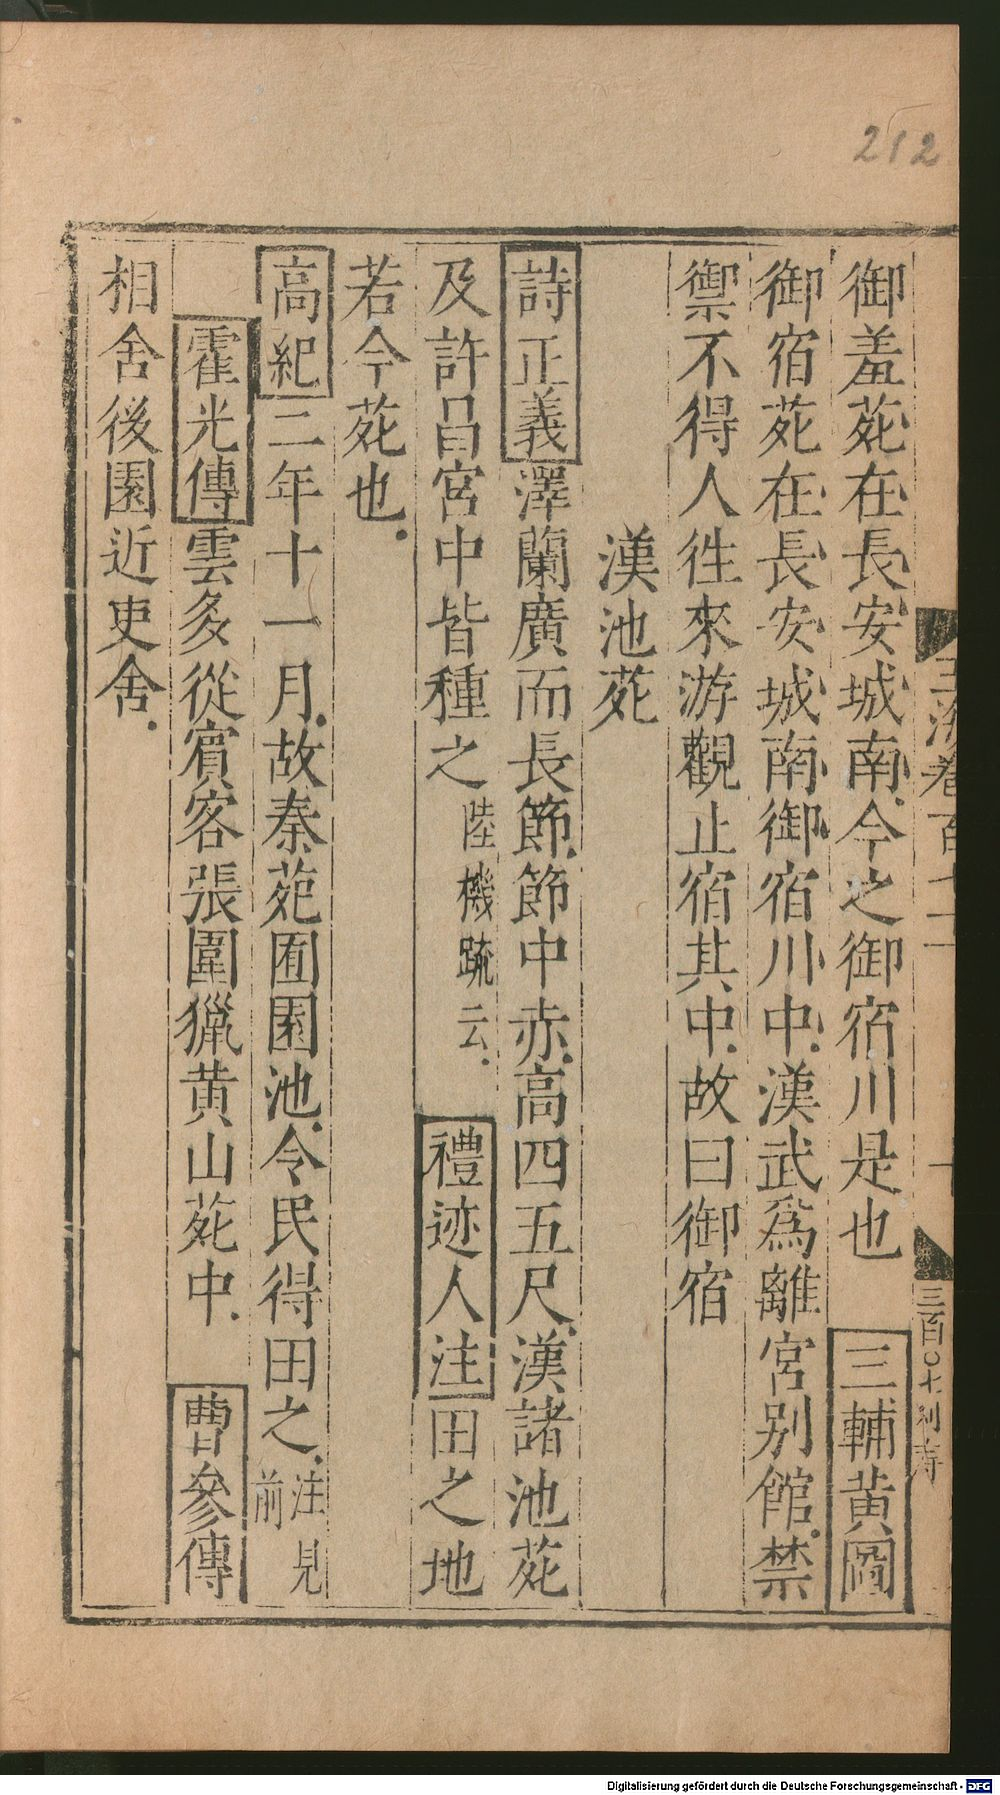 212
御羞苑在長安城南今之御宿川是也 三輔黄圖
御宿苑在長安城南御宿川中漢武爲離宮别館禁
禦不得人徃來游觀止宿其中故曰御宿
漢池苑
詩正義澤蘭廣而長節節中赤高四五尺漢諸池苑
及許昌宮中皆種之陸機䟽云 禮迹人注田之地
若今苑也
高紀二年十一月故秦苑囿園池令民得田之注見前
霍光傳雲多從賓客張圍獵黄山苑中 曹參傳
相舍後園近吏舍
Digitalisierung gefördert durch die Deutsche Forschungsgemeinschaft - DFG